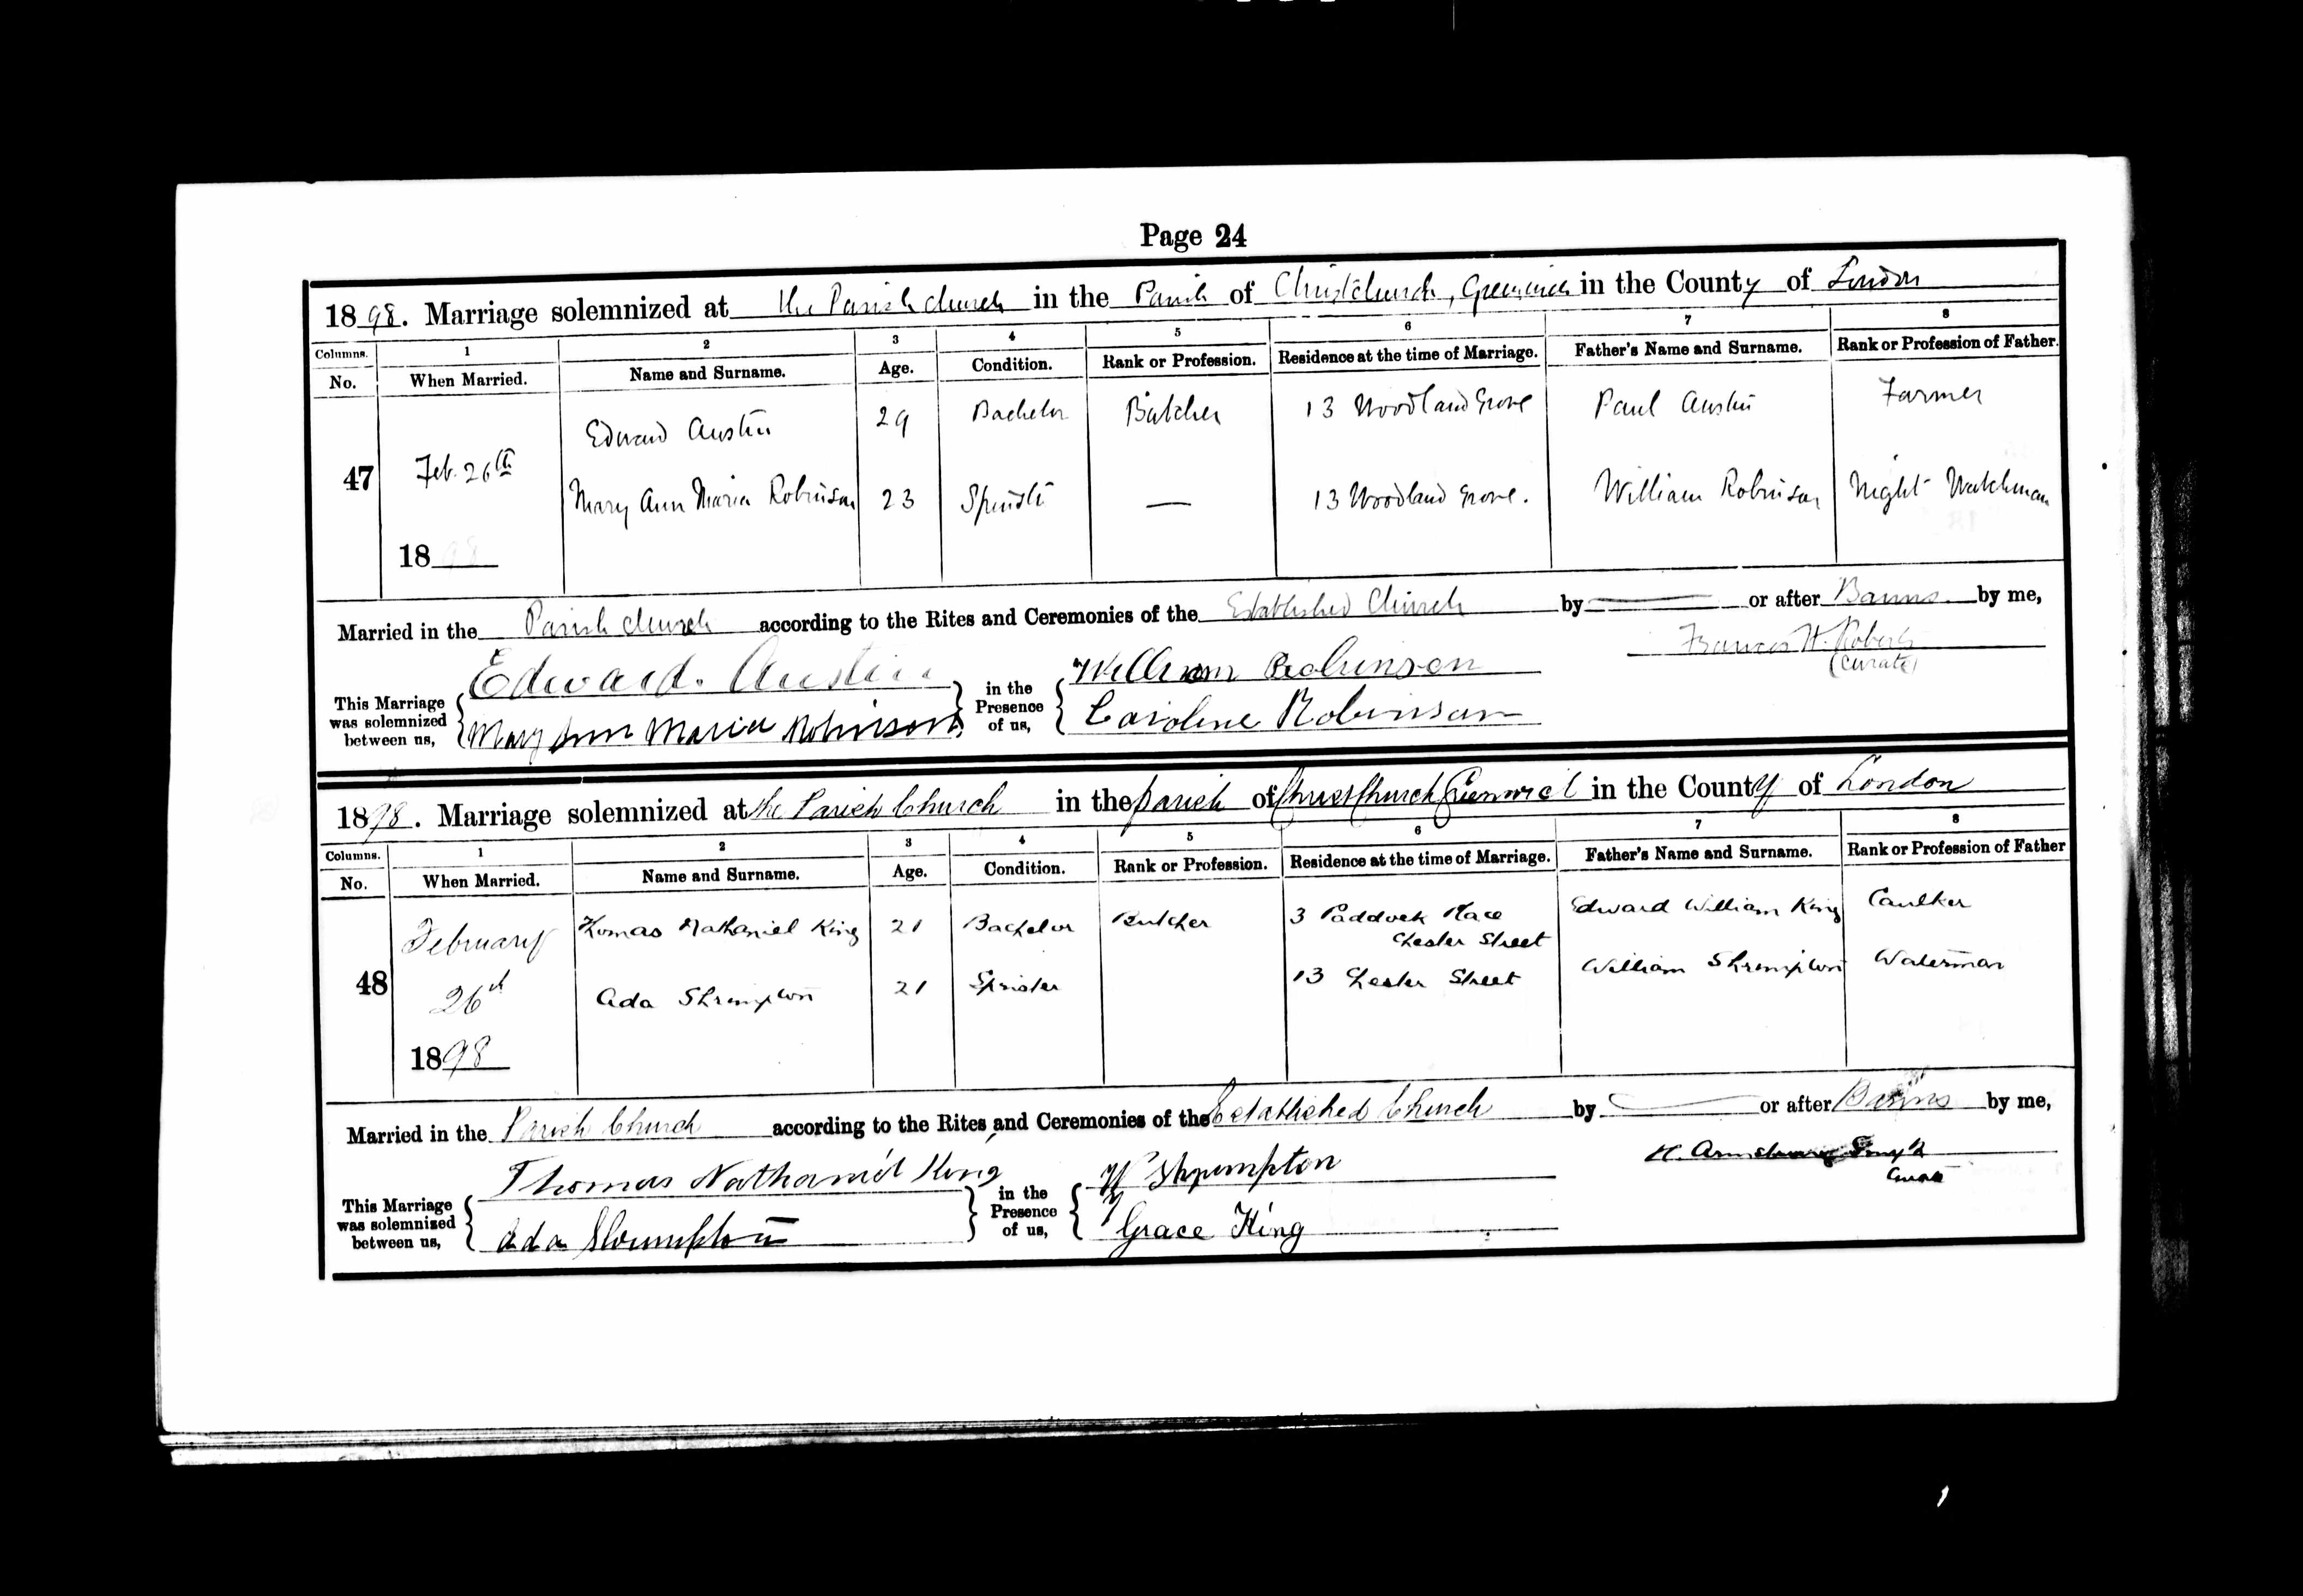 Page 24
1898. Marriage solemnized at the Parish church in the Parish of Christchurch, Greenwich in the County of London
Columns. 1 2 3 4 5 6 7 8
No. When Married. Name and Surname. Age. Condition. Rank or Profession. Residence at the time of Marriage. Father's Name and Surname. Rank or Profession of Father.
Edward Austin 29 Bachelor Butcher 13 Woodland Grove Paul Austin Farmer
47 Feb. 26th Mary Ann Maria Robinson 23 Spinster — 13 Woodland Grove. William Robinson Night Watchman
1898
Married in the Parish church according to the Rites and Ceremonies of the Established Church by or after Banns by me,
Francis H. Roberts
(Curate)
This Marriage was solemnized between us, Edward. Austin in the Presence of us, William Robinson
Mary Ann Maria Robinson Caroline Robinson
1898. Marriage solemnized at the Parish Church in the parish of Christ Church Greenwich in the County of London
Columns. 1 2 3 4 5 6 7 8
No. When Married. Name and Surname. Age. Condition. Rank or Profession. Residence at the time of Marriage. Father's Name and Surname. Rank or Profession of Father
February Thomas Nathaniel King 21 Bachelor Butcher 3 Paddock Place Edward William King Caulker
Chester Street
48 26th Ada Shrimpton 21 Spinster 13 Chester Street William Shrimpton Waterman
1898
Married in the Parish Church according to the Rites and Ceremonies of the Established Church by or after Banns by me,
H. Smyth
Curate
This Marriage was solemnized between us, Thomas Nathaniel King in the Presence of us, W Shrumpton
Ada Shrumpton Grace King